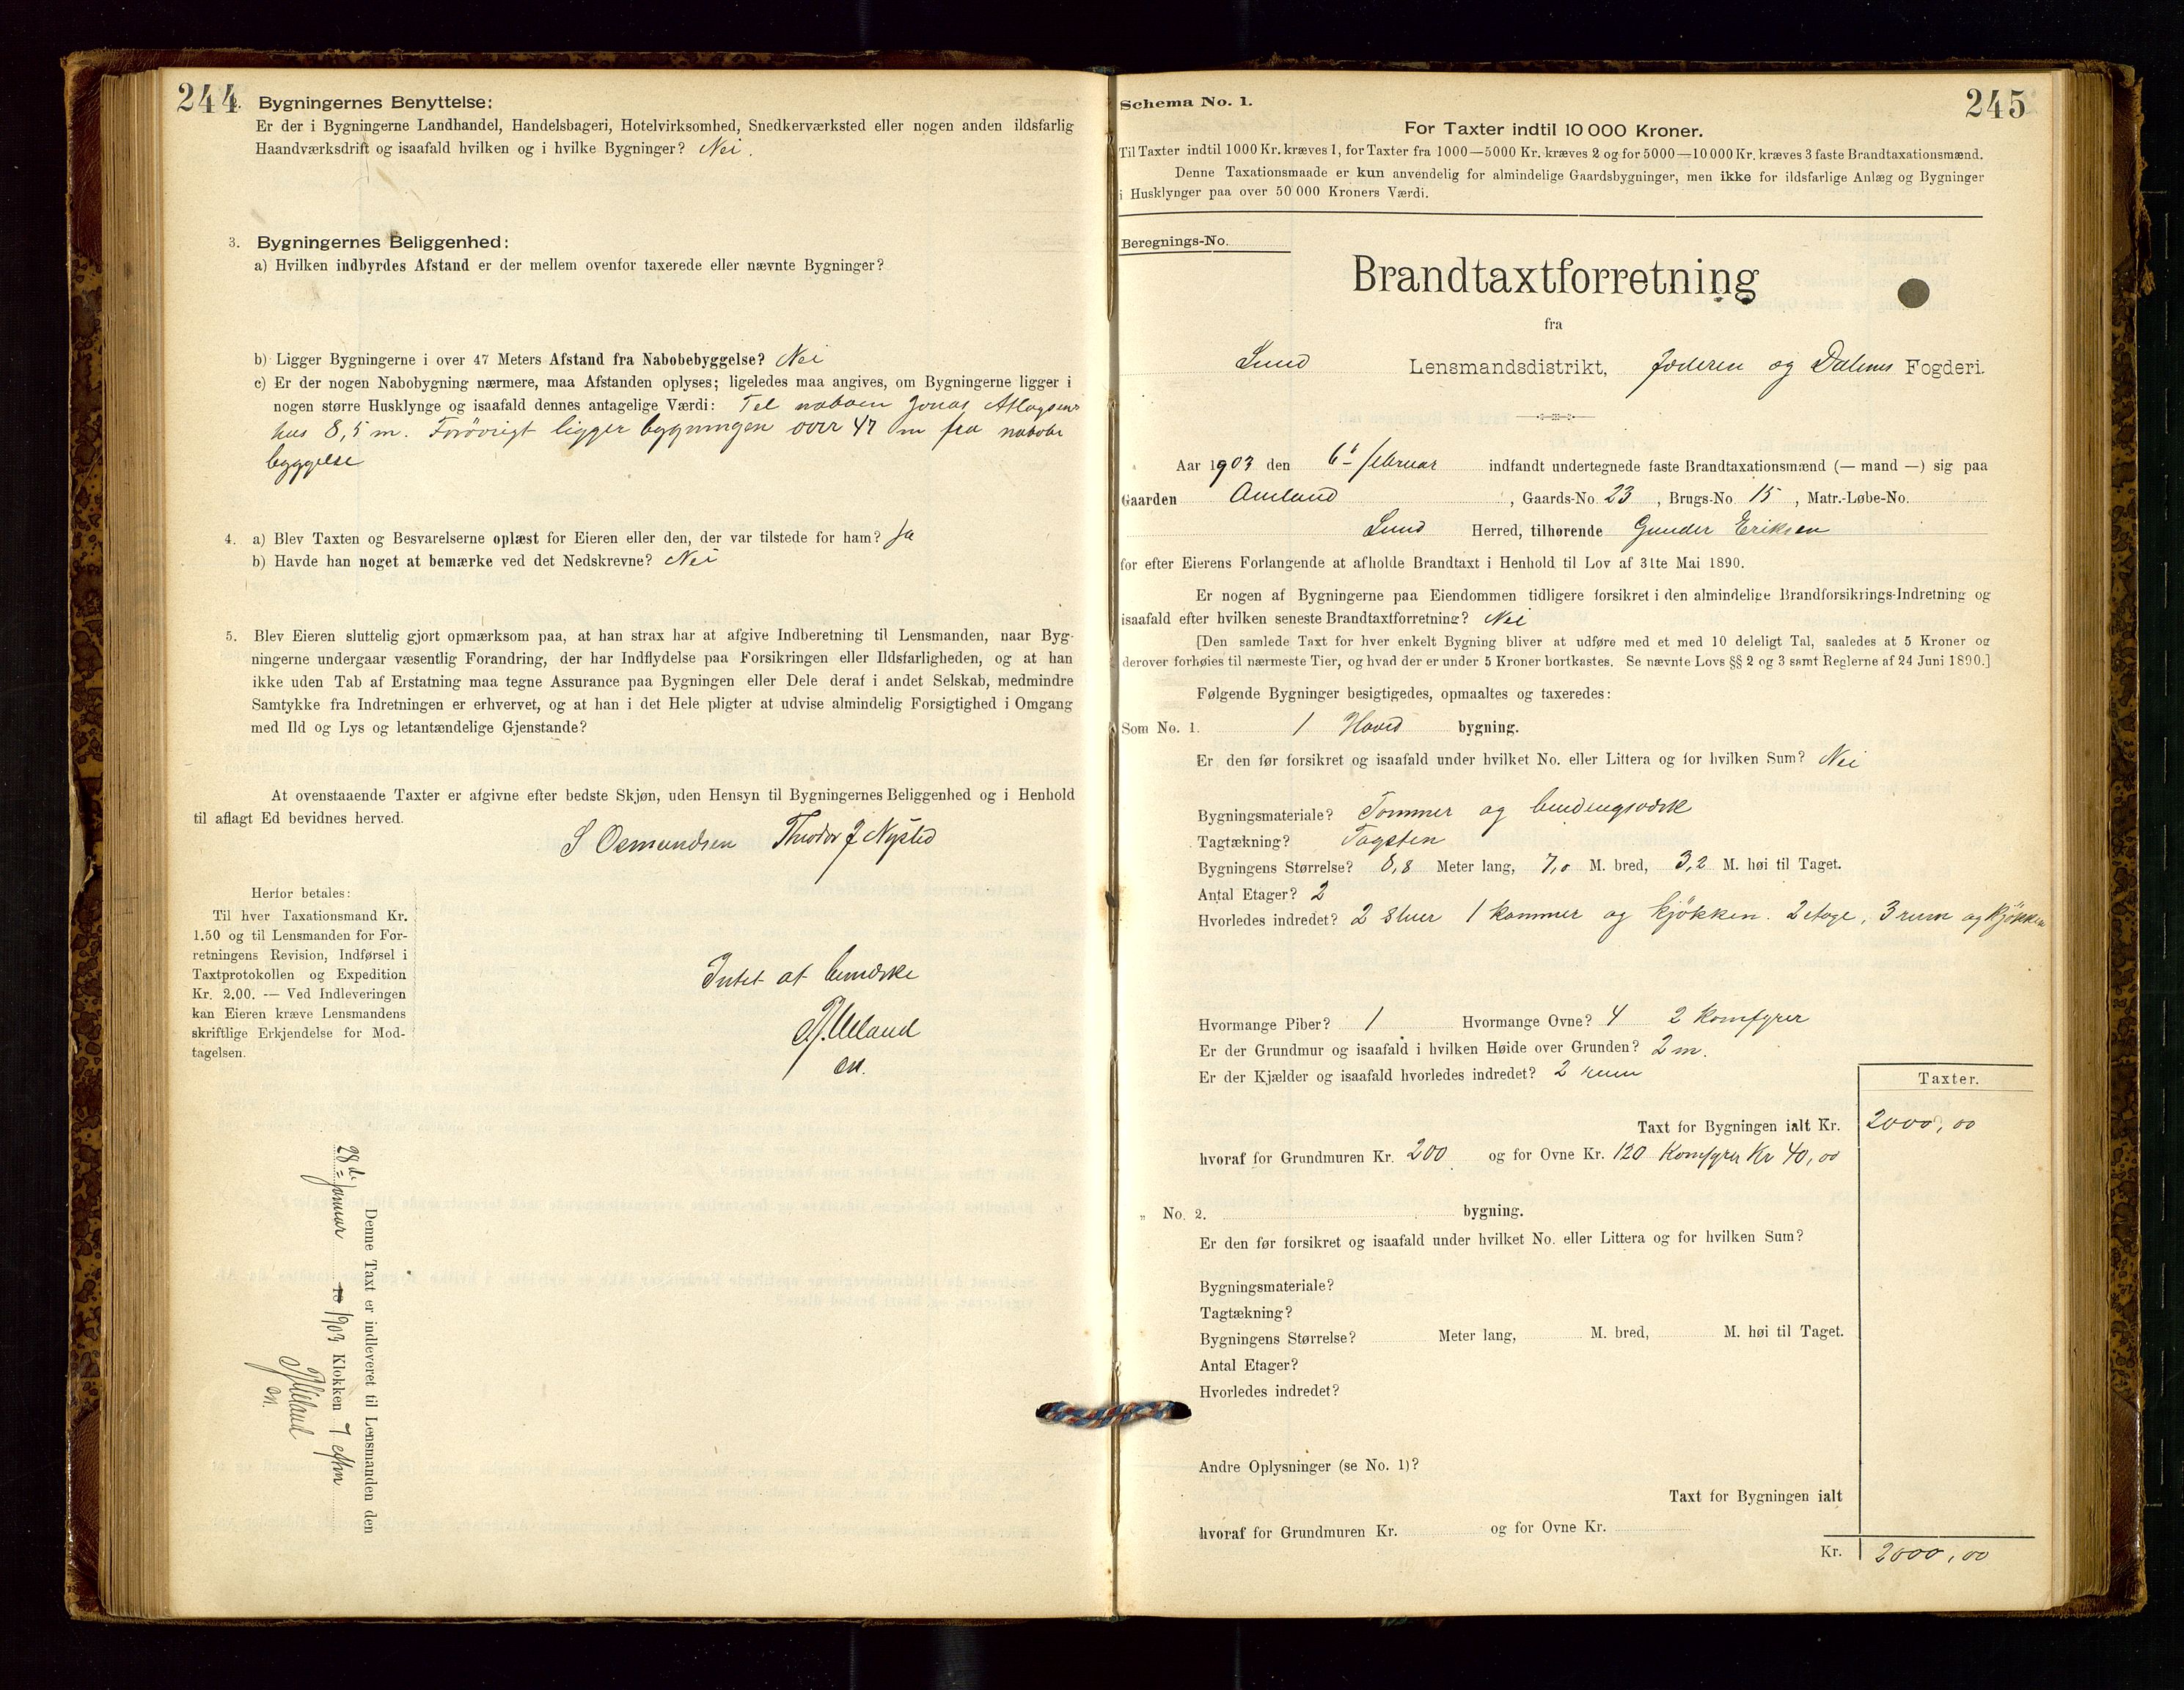 244.
Bygningernes Benyttelse:
Er der i Bygningerne Landhandel, Handelsbageri, Hotelvirksomhed, Snedkerværksted eller nogen anden ildsfarlig
Haandværksdrift og isaafald hvilken og i hvilke Bygninger? Nei.
3. Bygningernes Beliggenhed:
a) Hvilken indbyrdes Afstand er der mellem ovenfor taxerede eller nævnte Bygninger?
b) Ligger Bygningerne i over 47 Meters Afstand fra Nabobebyggelse? Nei
c) Er der nogen Nabobygning nærmere, maa Afstanden oplyses; ligeledes maa angives, om Bygningerne ligger i
nogen større Husklynge og isaafald dennes antagelige Værdi: Tel naboen Jonas
hus 8,5 m. Forövrigt ligger bygningen over 47 m fra nabobe
byggelse
4. a) Blev Taxten og Besvarelserne oplæst for Eieren eller den, der var tilstede for ham? Ja
b) Havde han noget at bemærke ved det Nedskrevne? Nei
5. Blev Eieren sluttelig gjort opmærksom paa, at han strax har at afgive Indberetning til Lensmanden, naar Byg-
ningerne undergaar væsentlig Forandring, der har Indflydelse paa Forsikringen eller Ildsfarligheden, og at han
ikke uden Tab af Erstatning maa tegne Assurance paa Bygningen eller Dele deraf i andet Selskab, medmindre
Samtykke fra Indretningen er erhvervet, og at han i det Hele pligter at udvise almindelig Forsigtighed i Omgang
med Ild og Lys og letantændelige Gjenstande?
At ovenstaaende Taxter er afgivne efter bedste Skjøn, uden Hensyn til Bygningernes Beliggenhed og i Henhold
til aflagt Ed bevidnes herved.
S Osmundsen Theodor J Nysted
Herfor betales:
Til hver Taxationsmand Kr.
1.50 og til Lensmanden for For-
retningens Revision, Indførsel i
Taxtprotokollen og Expedition
Kr. 2.00. — Ved Indleveringen
kan Eieren kræve Lensmandens
skriftlige Erkjendelse for Mod-
tagelsen.
Intet at bemærke
Denne Taxt er indleveret til Lensmanden den
28de Januar 18 1903 Klokken 7 eftm
Schema No. 1.
245
For Taxter indtil 10 000 Kroner.
Til Taxter indtil 1000 Kr. kræves 1, for Taxter fra 1000—5000 Kr. kræves 2 og for 5000—10 000 Kr. kræves 3 faste Brandtaxationsmænd.
Denne Taxationsmaade er kun anvendelig for almindelige Gaardsbygninger, men ikke for ildsfarlige Anlæg og Bygninger
i Husklynger paa over 50 000 Kroners Værdi.
Beregnings-No.
Brandtaxtforretning
fra
Lund Lensmandsdistrikt, Jæderen og Dalenes Fogderi.
Aar 1903 den 6te februar indfandt undertegnede faste Brandtaxationsmænd (— mand —) sig paa
Gaarden Omland, Gaards-No. 23, Brugs-No. 15, Matr.-Løbe-No.
Lund Herred, tilhørende Gunder Eriksen
for efter Eierens Forlangende at afholde Brandtaxt i Henhold til Lov af 31te Mai 1890.
Er nogen af Bygningerne paa Eiendommen tidligere forsikret i den almindelige Brandforsikrings-Indretning og
isaafald efter hvilken seneste Brandtaxtforretning? Nei
[Den samlede Taxt for hver enkelt Bygning bliver at udføre med et med 10 deleligt Tal, saaledes at 5 Kroner og
derover forhøies til nærmeste Tier, og hvad der er under 5 Kroner bortkastes. Se nævnte Lovs §§ 2 og 3 samt Reglerne af 24 Juni 1890.]
Følgende Bygninger besigtigedes, opmaaltes og taxeredes:
Som No. 1. 1 Hoved bygning.
Er den før forsikret og isaafald under hvilket No. eller Littera og for hvilken Sum? Nei
Bygningsmateriale? Tömmer og bindingsværk
Tagtækning? Tagsten
Bygningens Størrelse? 8,8 Meter lang, 7,0 M. bred, 3,2 M. høi til Taget.
Antal Etager? 2
Hvorledes indredet? 2 stuer 1 kammer og kjökken. 2 etage, 3 rum og kjökken
Hvormange Piber? 1 Hvormange Ovne? 4 2 komfyrer
Er der Grundmur og isaafald i hvilken Høide over Grunden? 2 m.
Er der Kjælder og isaafald hvorledes indredet? 2 rum
Taxter.
Taxt for Bygningen ialt Kr. 2000,00
hvoraf for Grundmuren Kr. 200 og for Ovne Kr. 120 Komfyrer Kr 40,00
„ No. 2. bygning.
Er den før forsikret og isaafald under hvilket No. eller Littera og for hvilken Sum?
Bygningsmateriale?
Tagtækning?
Bygningens Størrelse? Meter lang, M. bred, M. høi til Taget.
Antal Etager?
Hvorledes indredet?
Andre Oplysninger (se No. 1)?
Taxt for Bygningen ialt
hvoraf for Grundmuren Kr. og for Ovne Kr.
Kr. 2000,00